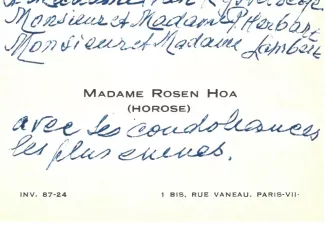 Monsieur et Madame P. Herbart
Monsieur et Madame Lambert
MADAME ROSEN HOA
(HOROSE)
avec ses condoléances
les plus émues.
INV. 87-24
1 BIS, RUE VANEAU. PARIS-VII·